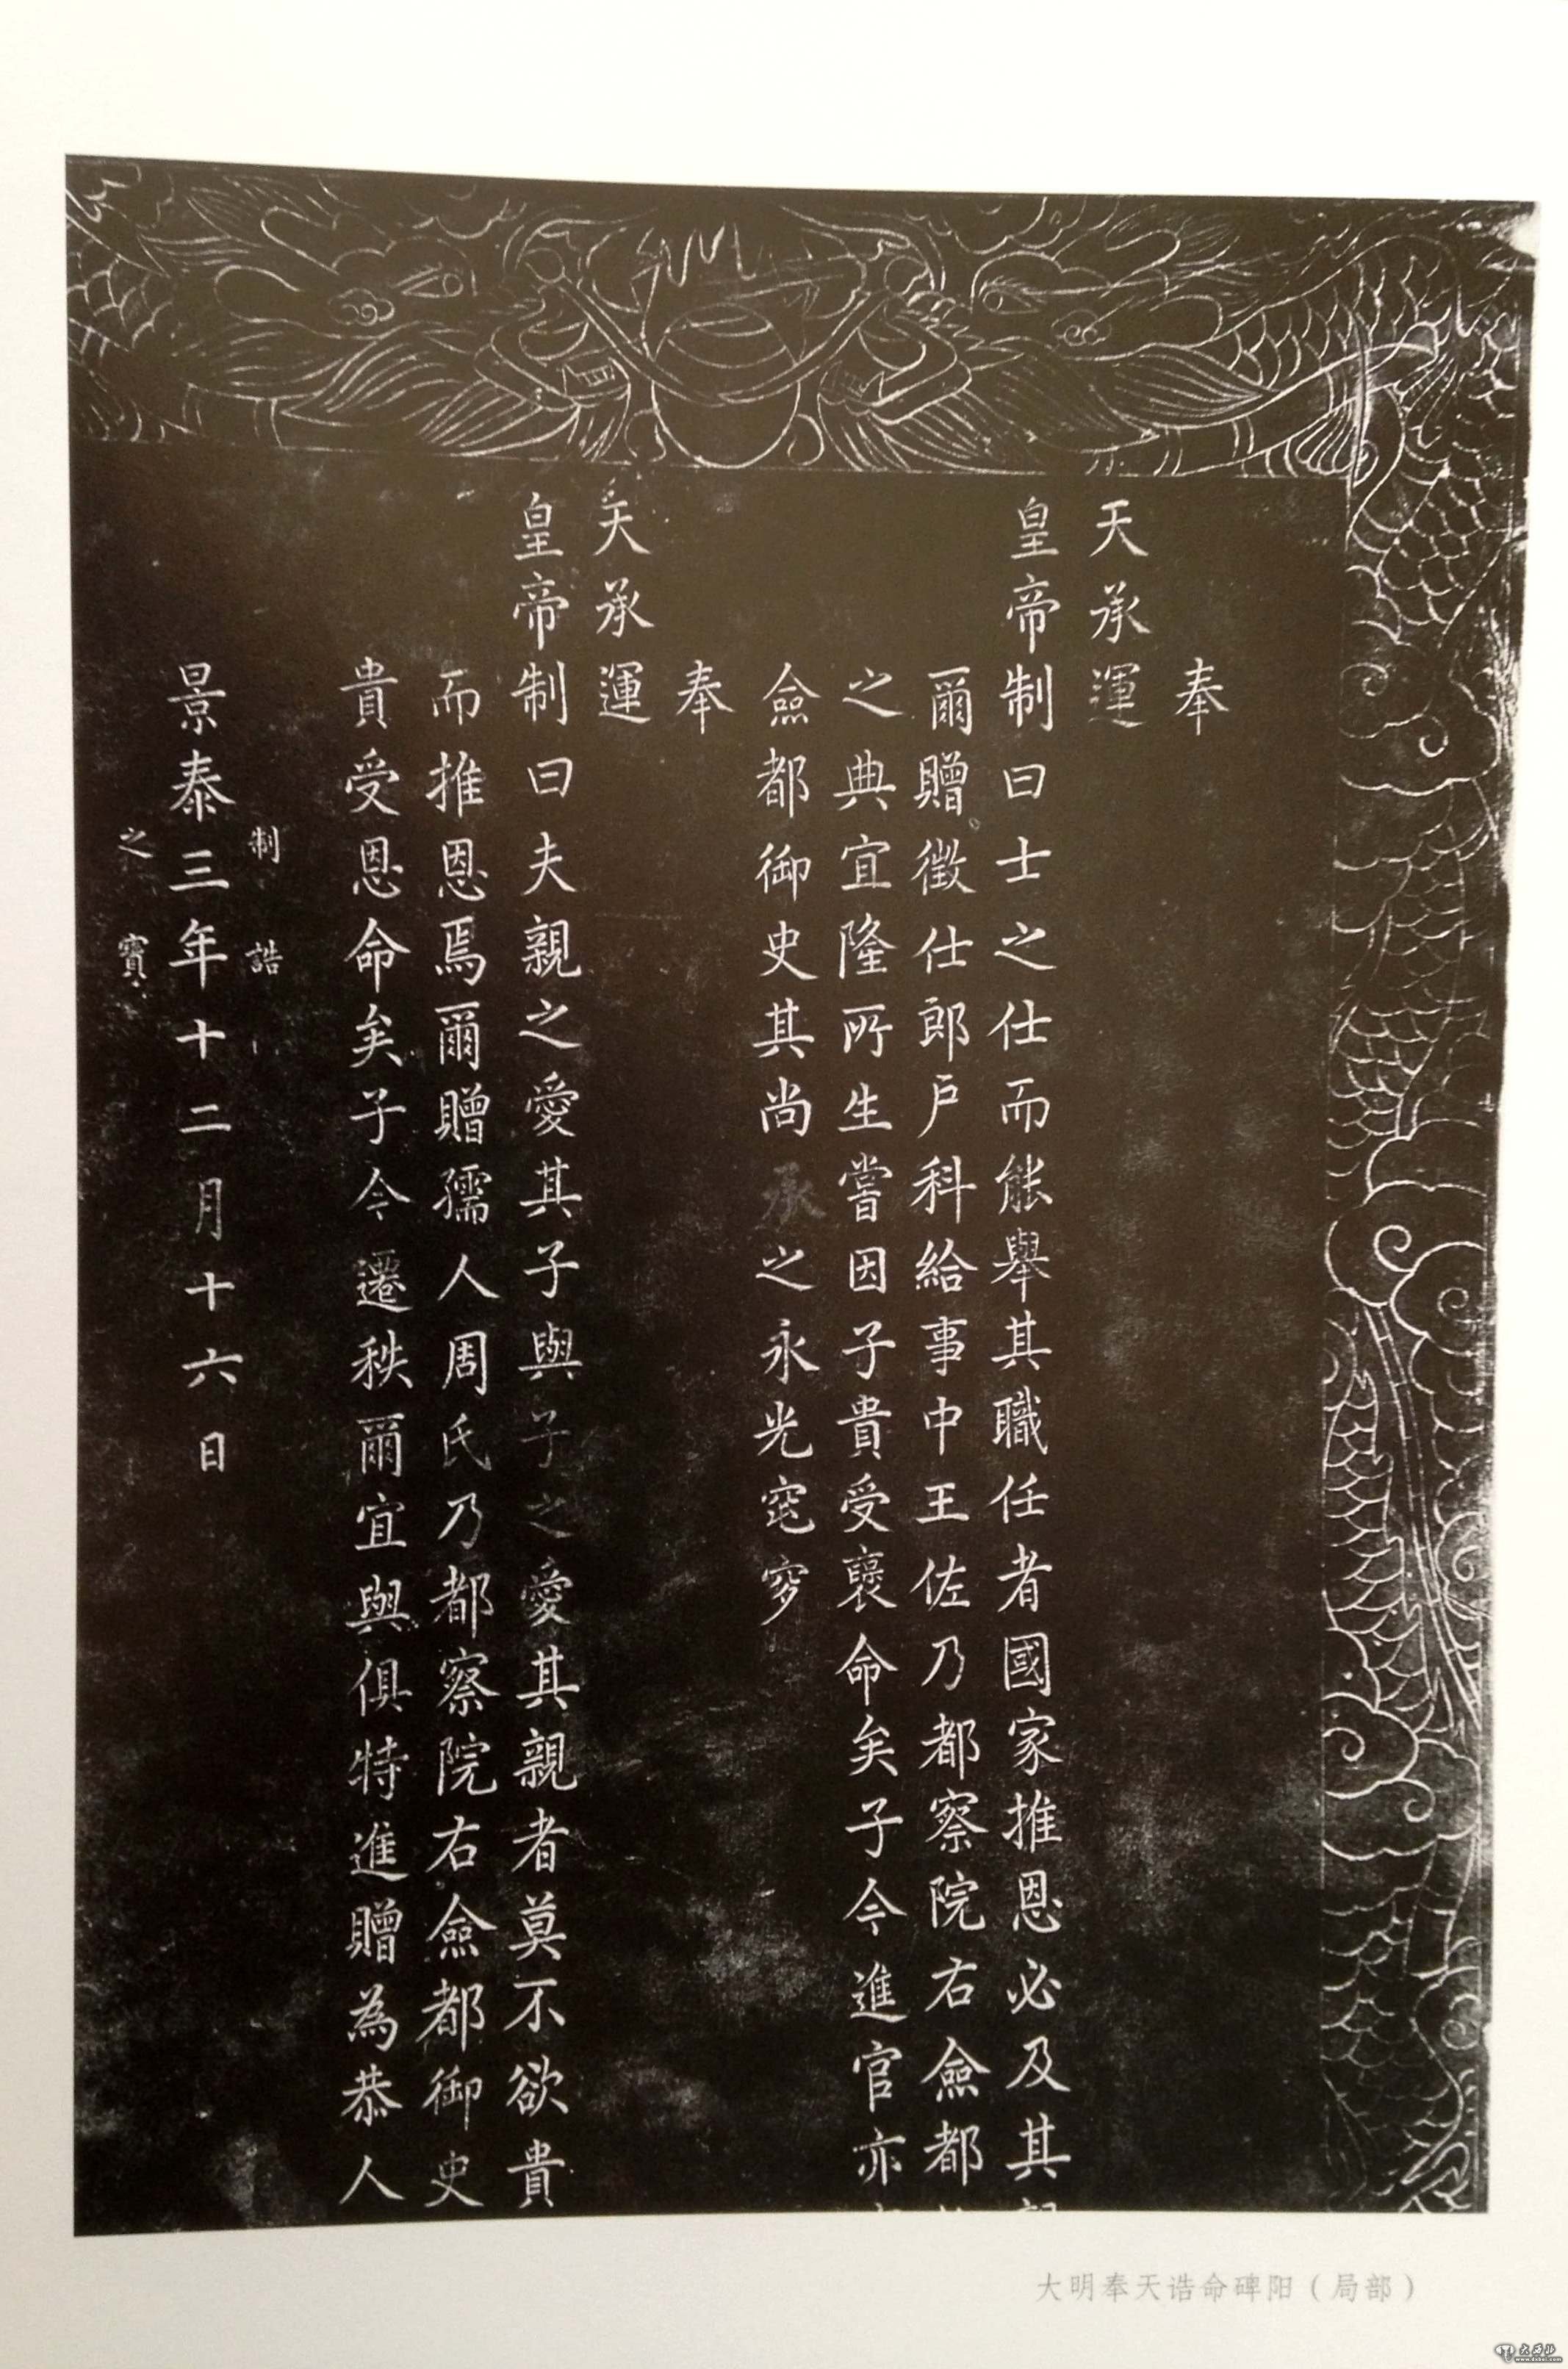 奉
天承運
皇帝制曰士之仕而能舉其職任者國家推恩必及其
爾贈徵仕郎戶科給事中王佐乃都察院右僉都
之典宜隆所生嘗因子貴受褒命矣子今進官亦
僉都御史其尚承之永光窀穸
奉
天承運
皇帝制曰夫親之愛其子與子之愛其親者莫不欲貴
而推恩焉爾贈孺人周氏乃都察院右僉都御史
貴受恩命矣子今遷秩爾宜與俱特進贈為恭人
制誥
景泰三年十二月十六日
之寶
大明奉天诰命碑阳（局部）
大西北
www.dxbei.com